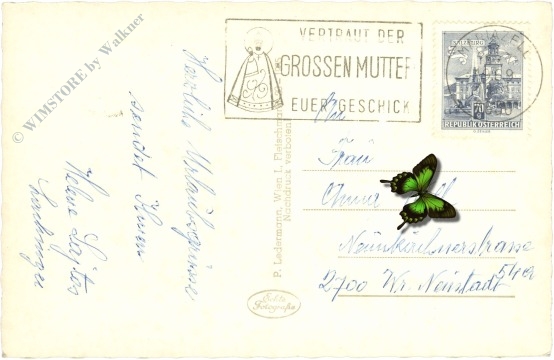 © WIMSTORE by Walkner
VERTRAUT DER
GROSSEN MUTTER
EUER GESCHICK
MARIAZELL
SALZBURG
70
REPUBLIK ÖSTERREICH
Herzliche Urlaubsgrüsse
sendet Ihnen
Helene
P. Ledermann, Wien I, Fleischmarkt
Nachdruck verboten
Echte
Fotografie
An
Frau
Neunkirchnerstrasse
54a
2700 Wr. Neustadt